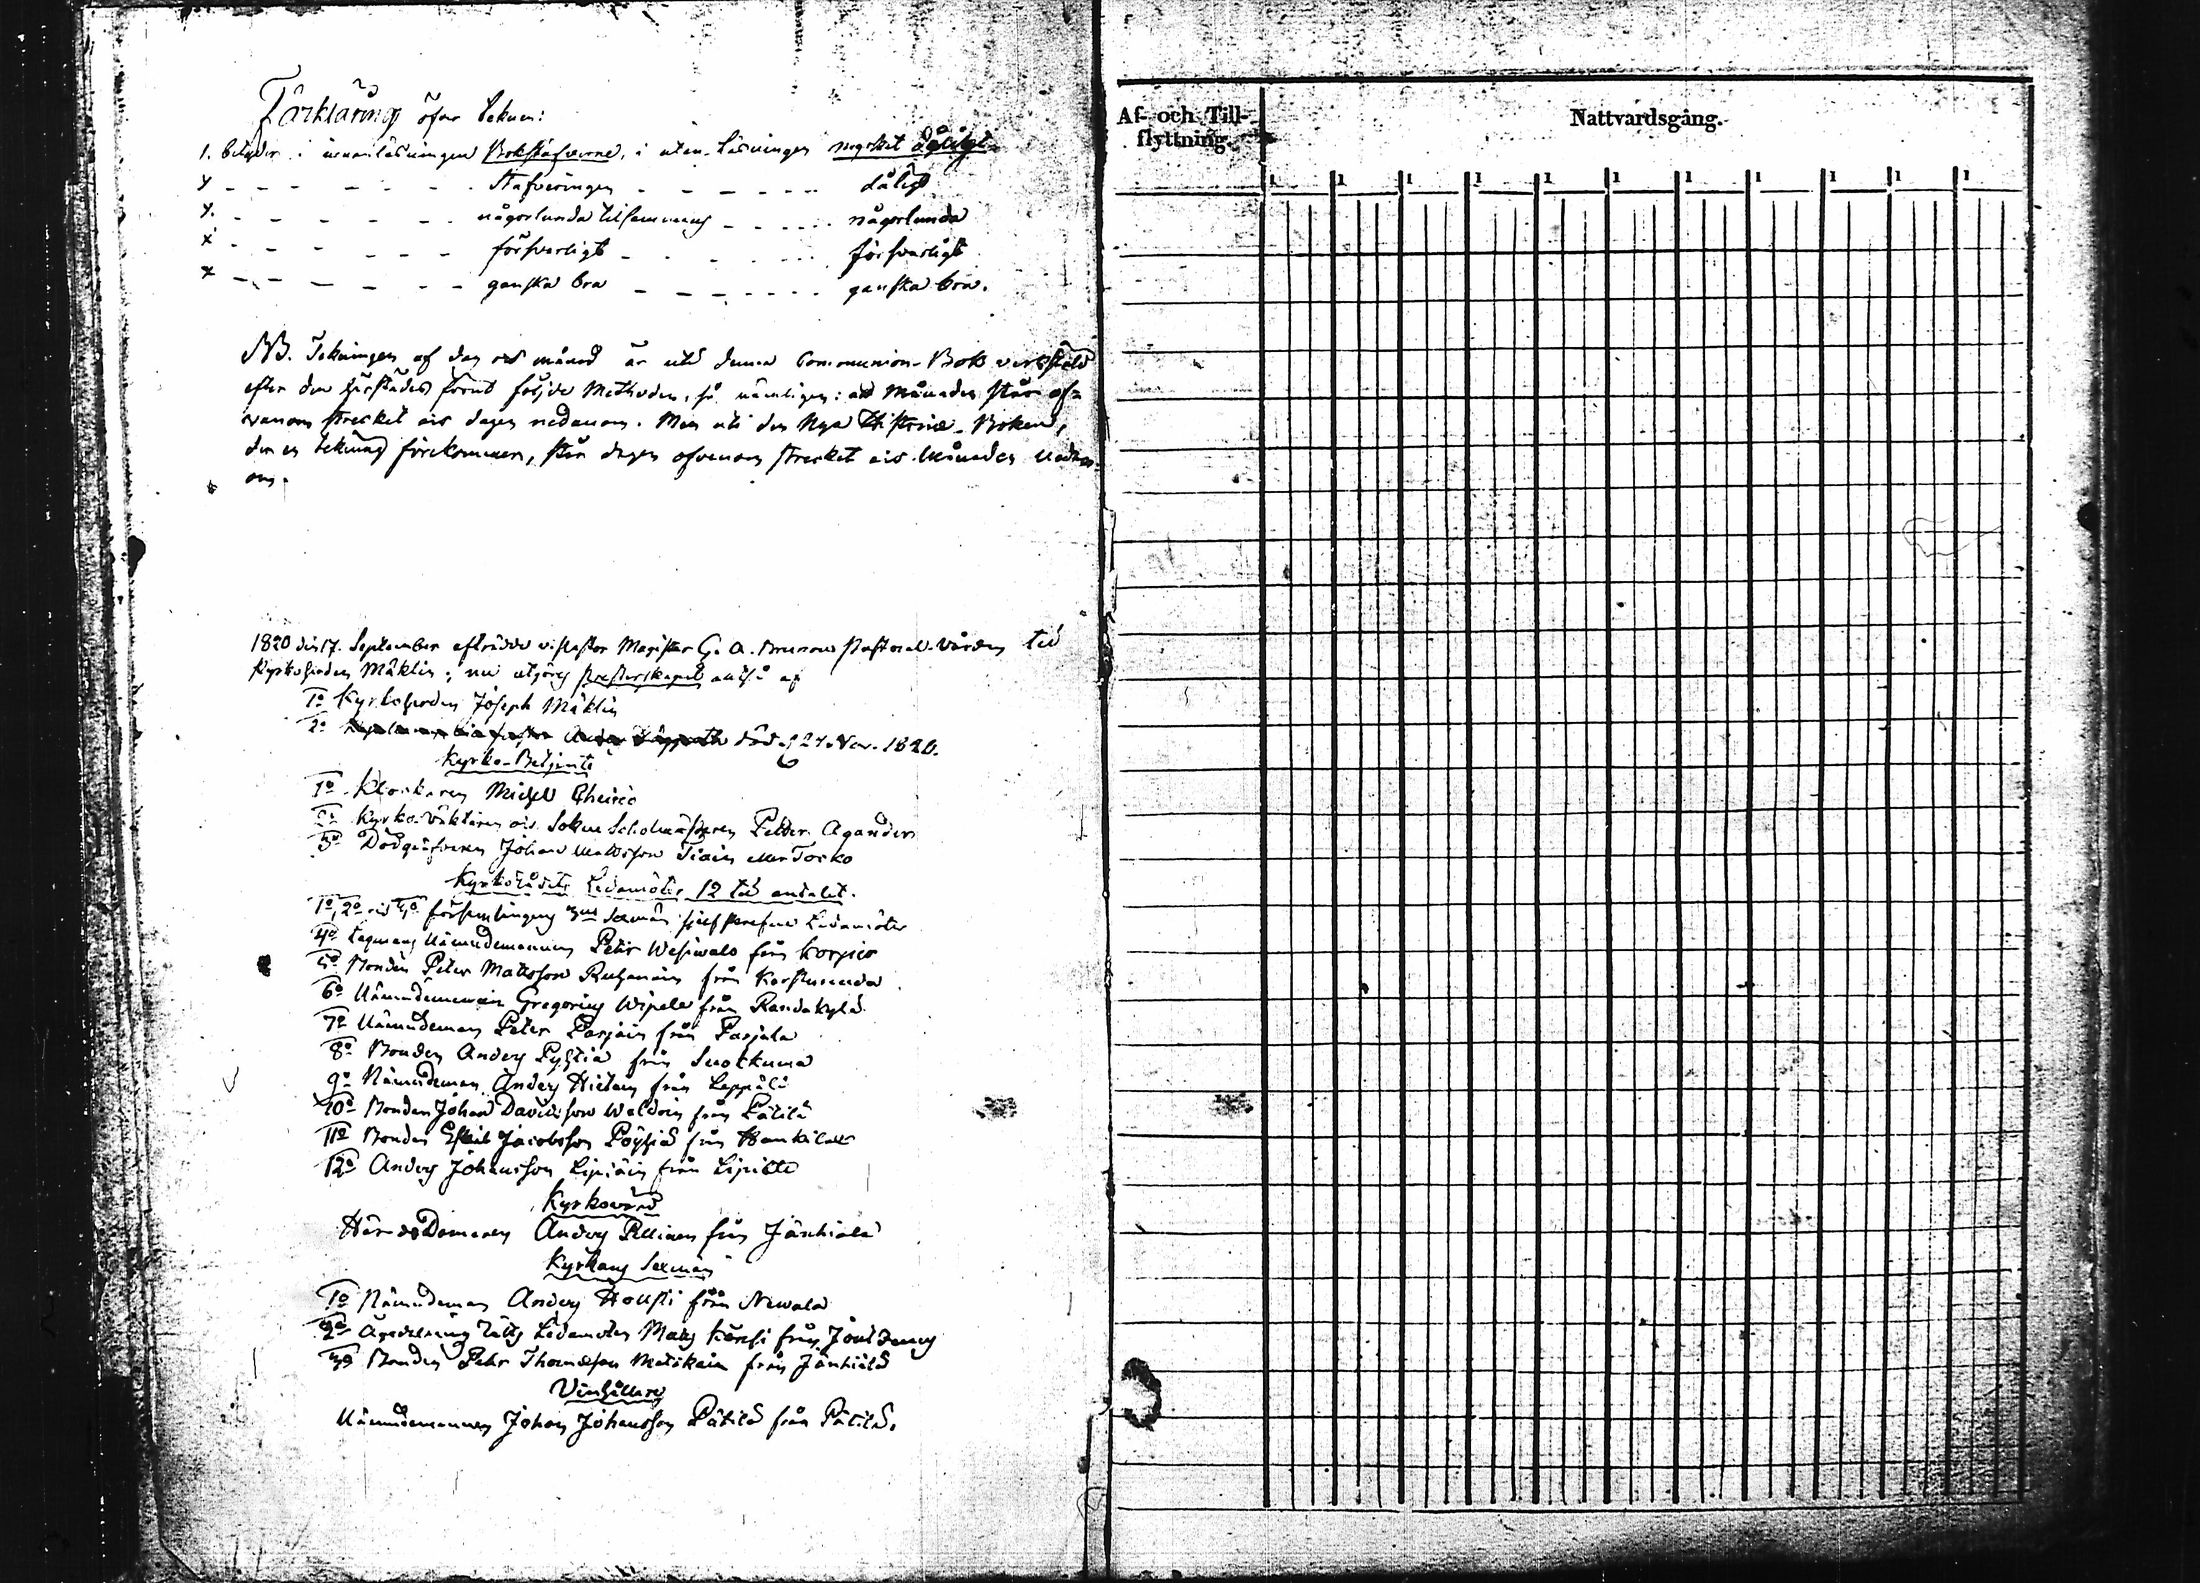 Förklaring öfver teknen:
1. betyder i innanläsningen Bokstäfverne, i utan-läsningen mycket dåligt
y - - - - - - stafveringen - - - - - - dåligt
y. - - - - - - någorlunda tilsammans - - - - - någorlunda
x - - - - - - försvarligt - - - - - - försvarligt
x - - - - - - ganska bra - - - - - - ganska bra.
NB. Tekningen af dag och månad är uti denna Communion-Bok verkstäld
efter den härstädes förut följde Methoden, så nämligen: at Månaden står of-
vanom strecket och dagen nedanom. Men uti den Nya Historie-Boken,
der en tekning förekommer, står dagen ofvanom strecket och Månaden nedan-
om.
1820 den 17. September afträdde v. Pastor Magister G. A. Brunow Pastoral-Vården til
Kyrkoherden Mäklin; nu utgöres Presterskapet altså af
1o Kyrkoherden Joseph Mäklin
2o död d 27. Nov. 1820.
Kyrko-Betjente
1o Klockaren Michel
2o Kyrko-Väktaren och Sokne Scholmästaren Petter Agander
3o Dödgräfvaren Johan Mattsson Tiain eller Torko
Kyrkorådets Ledamöter 12 til antalet.
1o, 2o och 3o församlingens 3ne Sexmän sjelfskrefne Ledamöter
4o Lagmans Nämndemannen Petter Wesiwalo från Korpio
5o Bonden Peter Mattsson Ruhanen från
6o Nämndemannen Gregorius Wipele från Randakylä
7o Nämndeman Peter Parjain från Parjala
8o Bonden Anders Pyhtiä från Suokkuma
9o Nämndeman Anders Hietain från Leppälä
10o Bonden Johan Davidsson Waldin från Pätilä
11o Bonden Eskil Jacobsson Pöyhiä från
12o Anders Johansson Lipiäin från
Kyrkovärd
HäradsDomaren Anders Pellinen från Jänhiälä
Kyrkans Sexmän
1o Nämndeman Anders Housti från Niwala
2o Ägodelnings Rätts Ledamoten Mats från
3o Bonden Pehr Thomasson Matikain från Jänhiälä
Vinhållare
Nämndemannen Johan Johansson Pätilä från Pätilä.
Af- och Till-
flyttning.
Nattvardsgång.
1 1 1 1 1 1 1 1 1 1 1